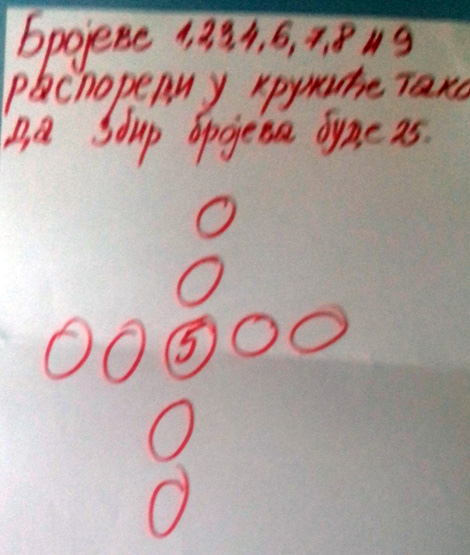 Бројеве 1,2,3,4,6,7,8 и 9
распореди у кружиће тако
да збир бројева буде 25.
5